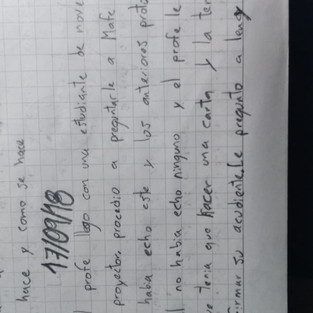 hace y como se hace
17/09/18
profe llego con una estudiante de nove
proyector, procedio a preguntarle a Mate
habia echo este y los anteriores proto
l no habia echo ninguno y el profe le
e tenia que hacer una carta y la ter
irmar su acudiente. Le pregunto a leng